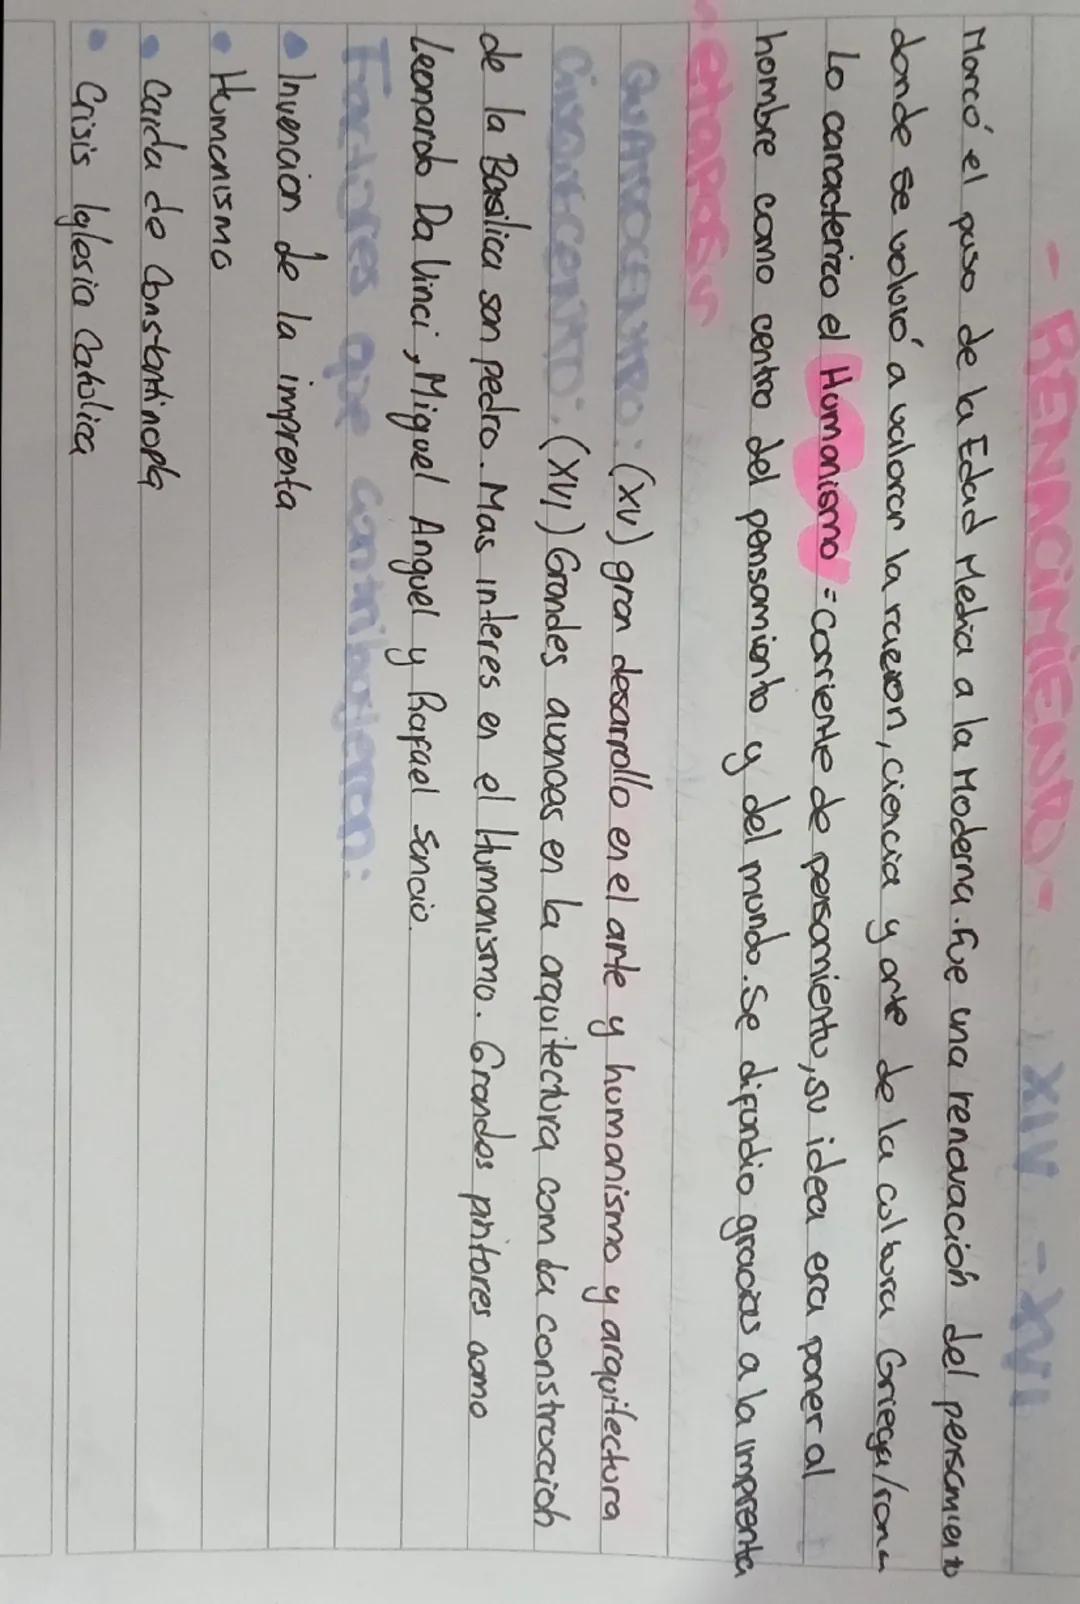 - RENACIMIENTO - XIV - XVI
Marcó el paso de la Edad Media a la Moderna. Fue una renovación del pensamiento
donde se volvió a valorar la razon, ciencia y arte de la cultura Griega/roma
Lo caracterizo el Humanismo = corriente de pensamiento, su idea era poner al
hombre como centro del pensamiento y del mundo. Se difundio gracias a la imprenta
etapas
QUATROCENTRO: (XV) gran desarrollo en el arte y humanismo y arquitectura
(XVI) Grandes avances en la arquitectura com la construcción
de la Basilica san pedro. Mas interes en el Humanismo. Grandes pintores como
Leonardo Da Vinci, Miguel Anguel y Rafael Sancio.
Factores que contribuyeron:
• Invencion de la imprenta
• Humanismo
• Caida de Constantinopla
• Crisis Iglesia Catolica